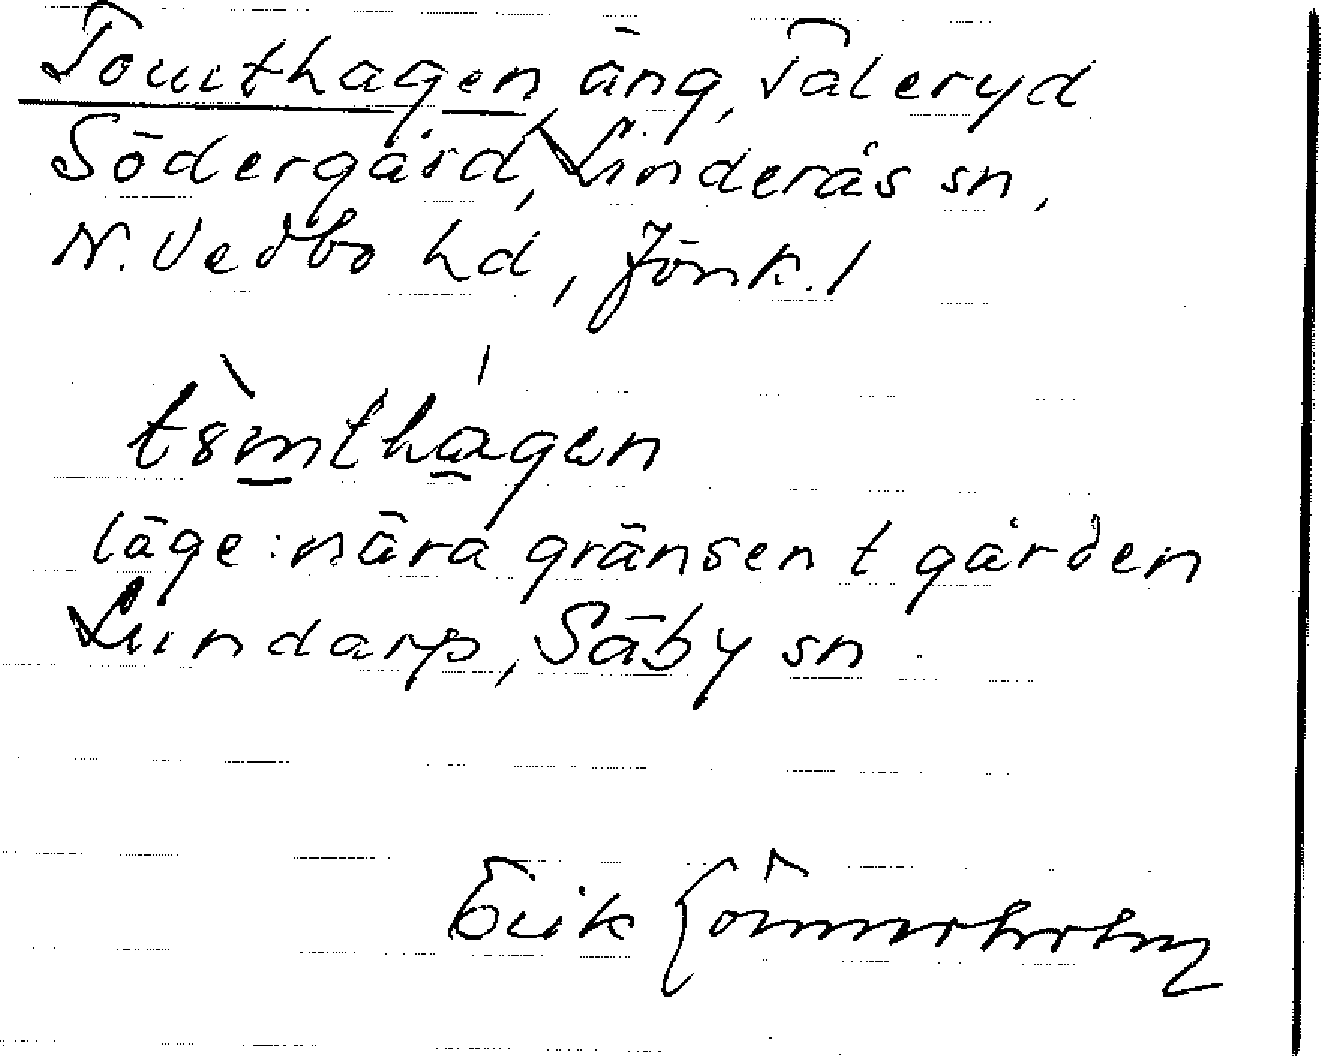 Tomthagen, äng, Taleryd
Södergård, Linderås sn,
N. Vedbo hd, Jönk. l
tsmthagen
läge: nära gränsen t gården
Lundarp, Säby sn
Erik